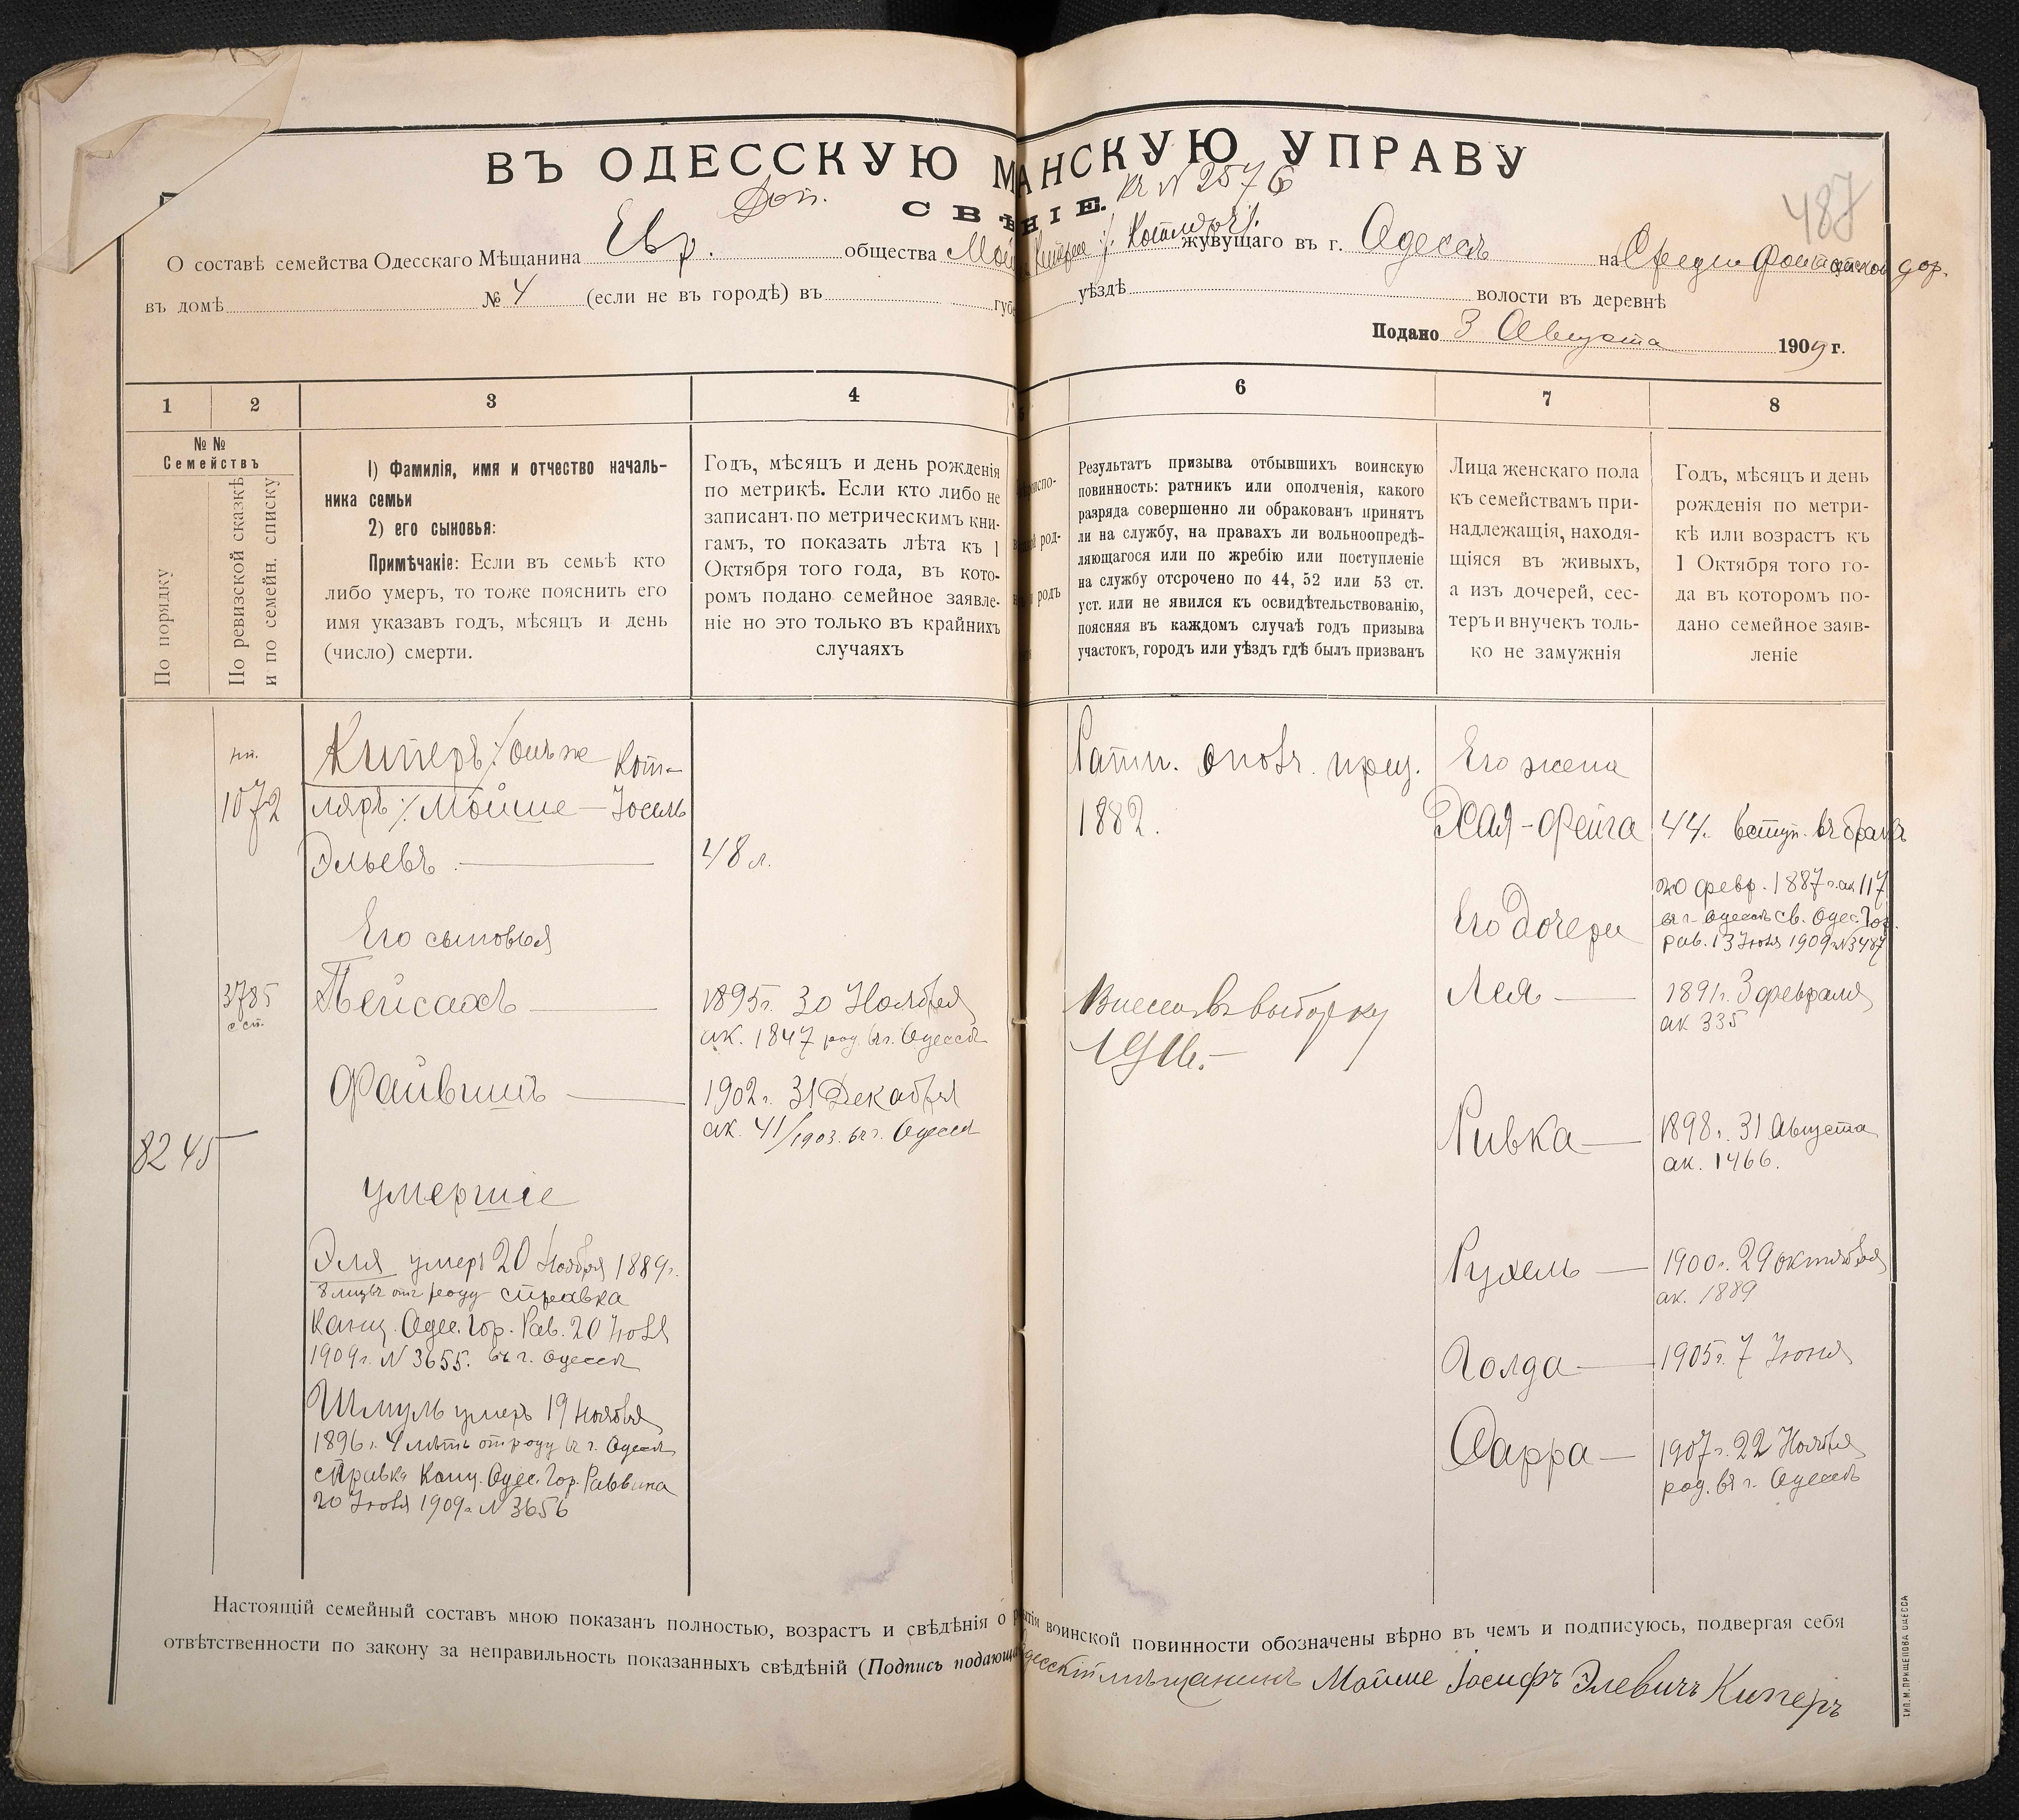 ВЪ ОДЕССКУЮ М АНСКУЮ УПРАВУ
Доп. къ № 2576
СВѢ НІЕ.
487
О составѣ семейства Одесскаго Мѣщанина Евр. общества Мой живущаго въ г. Одессѣ на Средне Фонтанской дор.
въ домѣ № 4 (если не въ городѣ) въ губе уѣздѣ волости въ деревнѣ
Подано 3 Августа 1909 г.
1 2 3 4 6 7 8
№ № Семействъ
По порядку
По ревизской сказкѣ и по семейн. списку
1) Фамилія, имя и отчество началь-
ника семьи
2) его сыновья:
Примѣчаніе: Если въ семьѣ кто
либо умеръ, то тоже пояснить его
имя указавъ годъ, мѣсяцъ и день
(число) смерти.
Годъ, мѣсяцъ и день рожденія
по метрикѣ. Если кто либо не
записанъ по метрическимъ кни-
гамъ, то показать лѣта къ 1
Октября того года, въ кото-
ромъ подано семейное заявле-
ніе но это только въ крайнихъ
случаяхъ
Результатъ призыва отбывшихъ воинскую
повинность: ратникъ или ополченія, какого
разряда совершенно ли обракованъ принятъ
ли на службу, на правахъ ли вольноопредѣ-
ляющагося или по жребію или поступленіе
на службу отсрочено по 44, 52 или 53 ст.
уст. или не явился къ освидѣтельствованію,
поясняя въ каждомъ случаѣ годъ призыва
участокъ, городъ или уѣздъ гдѣ былъ призванъ
Лица женскаго пола
къ семействамъ при-
надлежащія, находя-
щіяся въ живыхъ,
а изъ дочерей, сес-
теръ и внучекъ толь-
ко не замужнія
Годъ, мѣсяцъ и день
рожденія по метри-
кѣ или возрастъ къ
1 Октября того го-
да въ которомъ по-
дано семейное заяв-
леніе
1072
Киперъ /онъ же Кот-
ляръ/ Мойше-Іосель
Эльевъ 48 л.
Его сыновья
3785
Пейсахъ
1895 г. 30 Ноября
ак. 1847 род. въ г. Одессѣ
Файвишъ
1902 г. 31 Декабря
ак. 41/1903. въ г. Одессѣ
8245
умершіе
Эля умеръ 20 Ноября 1889 г.
отъ роду справка
Канц. Одес. Гор. Рав. 20 Іюля
1909 г. № 3655. въ г. Одессѣ
Шмуль умеръ 19 Ноября
1896 г. 4 лѣтъ отъ роду въ г. Одессѣ
справка Канц. Одес. Гор. Раввина
20 Іюля 1909 г. № 3656
Ратн. ополч. приз.
1882.
Внесенъ въ выборку
1916.-
Его жена
Хая-Фейга
44. вступ. въ бракъ
20 февр. 1887 г. ак 117
въ г. Одессѣ св. Одес. Гор.
рав. 13 Іюля 1909 г. № 3487
Его дочери
Лея
1891 г. 3 февраля
ак 335
Ривка
1898 г. 31 Августа
ак. 1466.
Рухель
1900 г. 29 октября
ак. 1889
Голда
1905 г. 7 Іюня
Сарра
1907 г. 22 Ноября
род. въ г. Одессѣ
Настоящій семейный составъ мною показанъ полностью, возрастъ и свѣдѣнія о воинской повинности обозначены вѣрно въ чемъ и подписуюсь, подвергая себя
отвѣтственности по закону за неправильность показанныхъ свѣдѣній (Подпись подающа
десскій мѣщанинъ Мойше Іосифъ Элевичъ Киперъ
ТИП. М. ПРИЩЕПОВА ОДЕССА